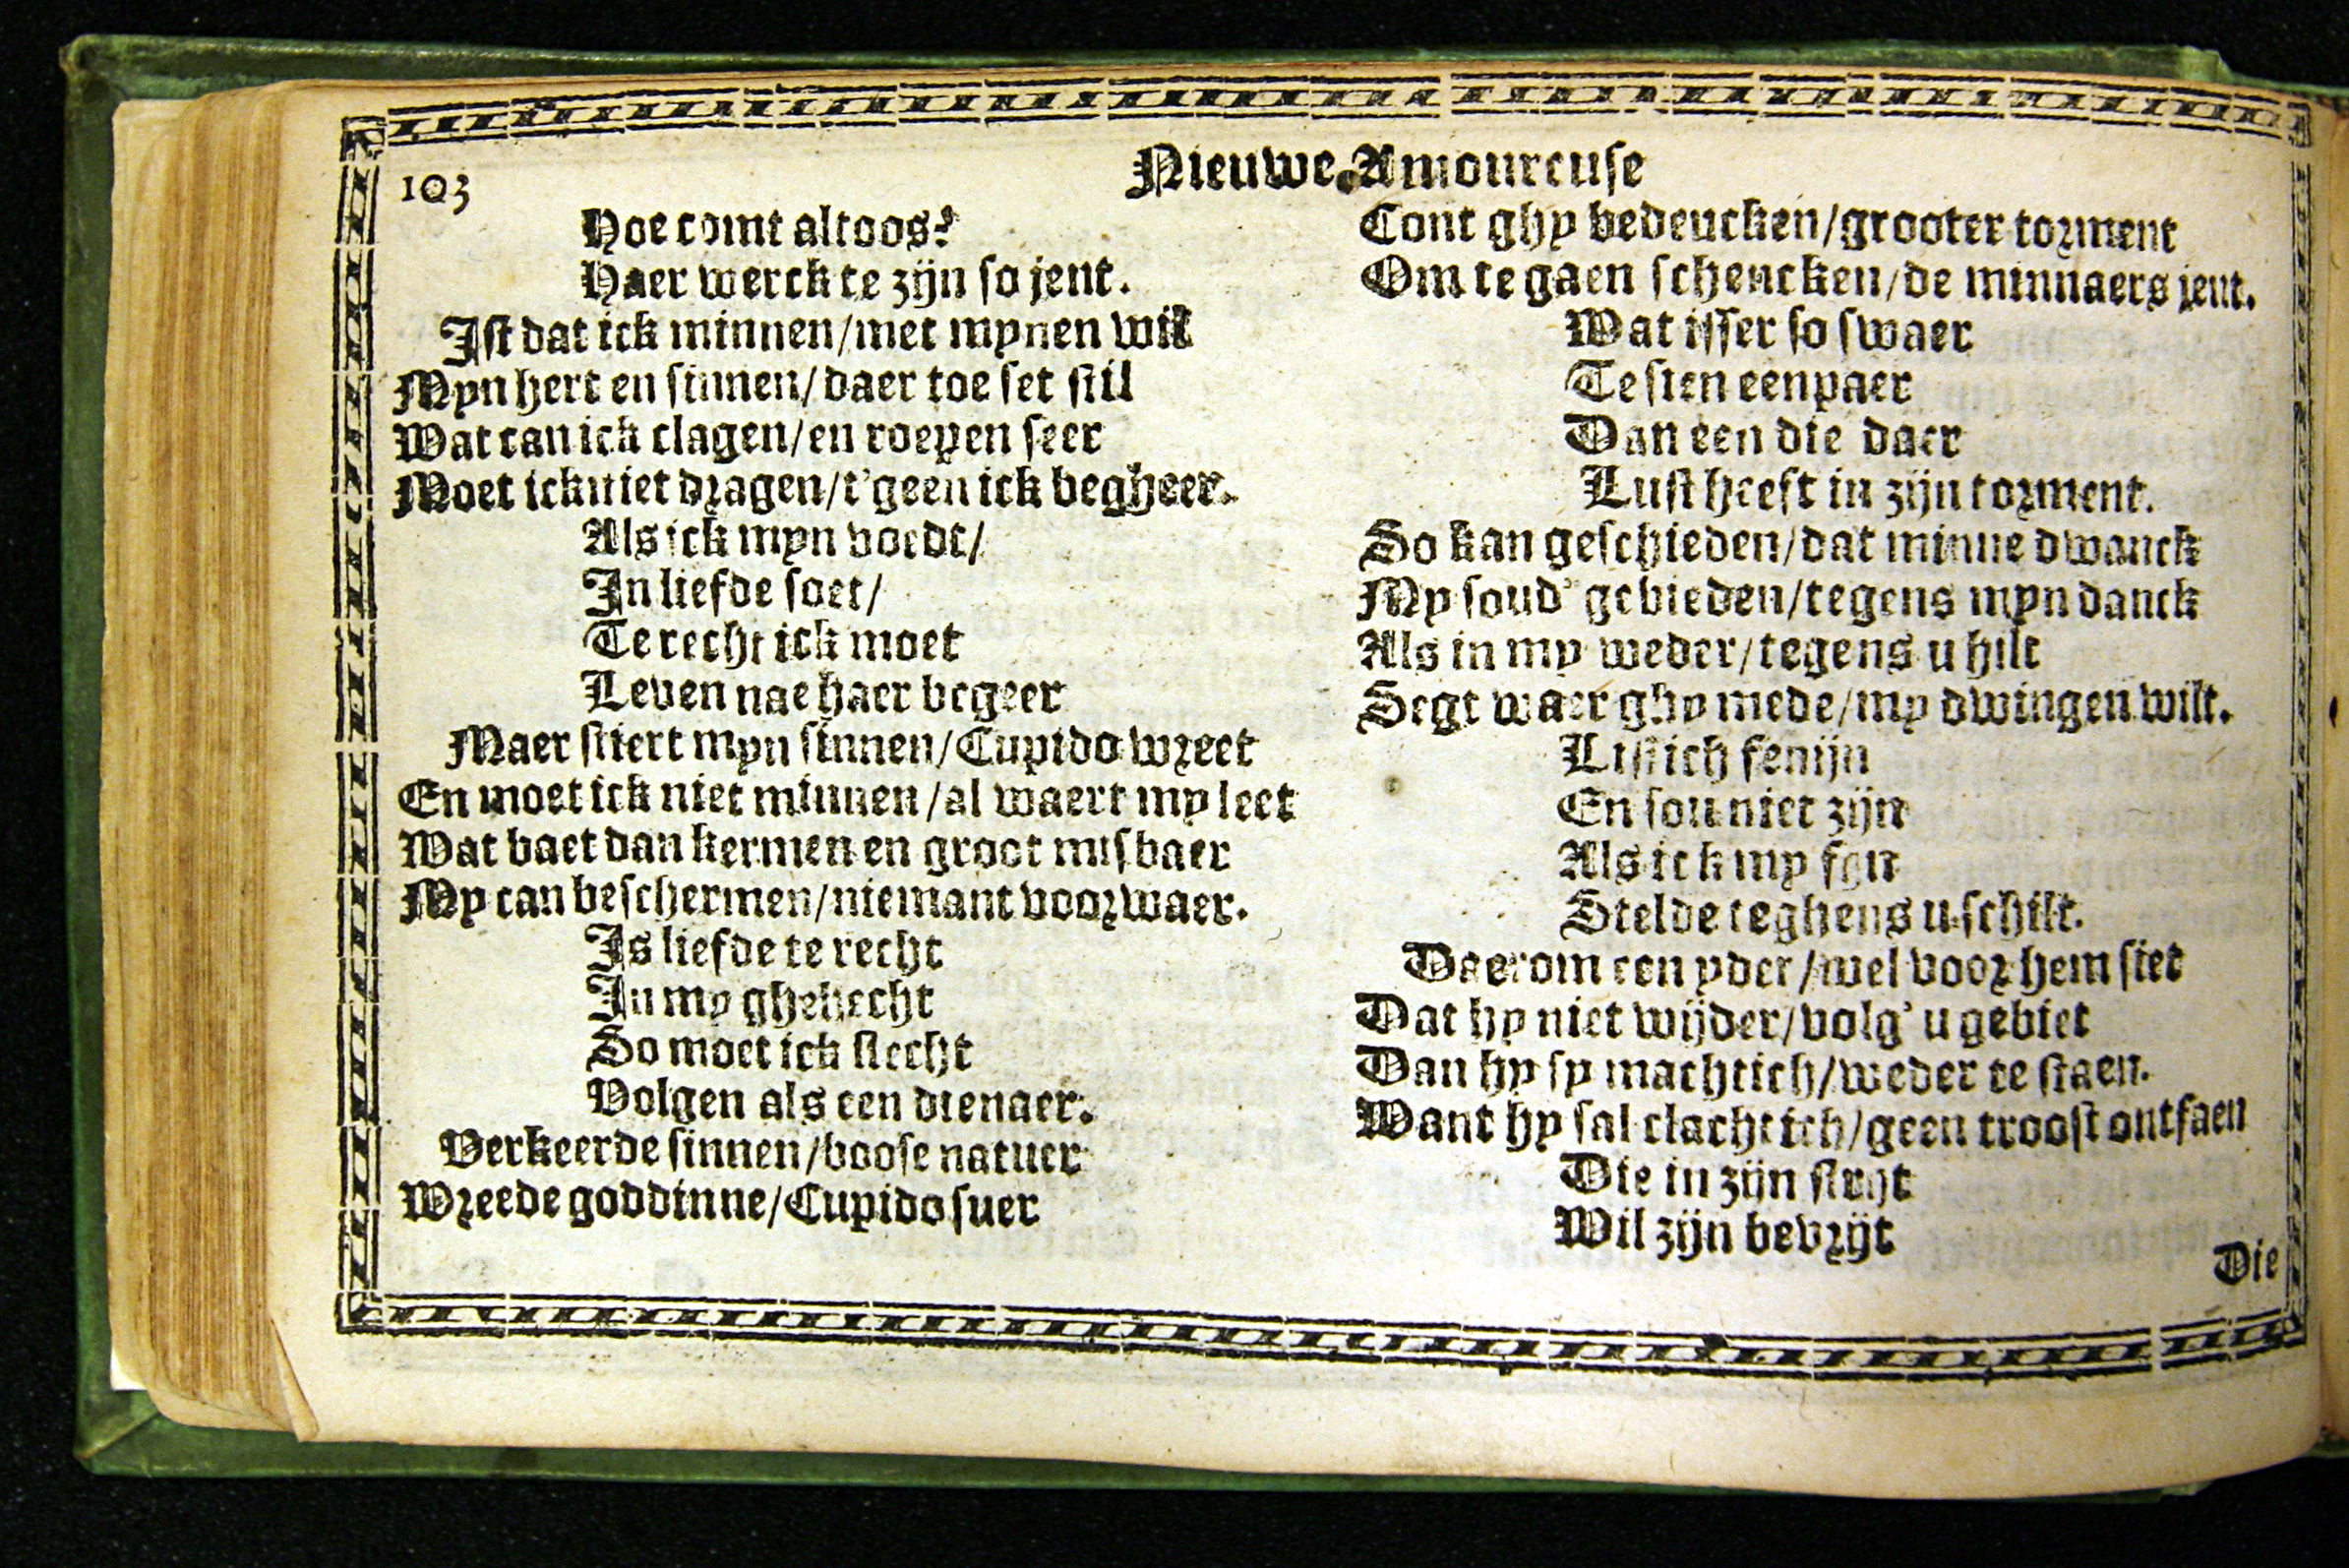 103
Nieuwe Amoureuse
Hoe comt altoos?
Haer werck te zijn so jent.
Ist dat ick minnen/met mynen wil
Myn hert en sinnen/daer toe set stil
Wat can ick clagen/en roepen seer
Moet ick niet dragen/t'geen ick begheer.
Als ick myn voedt/
In liefde soet/
Te recht ick moet
Leven nae haer begeer
Maer stiert myn sinnen/Cupido wreet
En moet ick niet minnen/al waert my leet
Wat baet dan kermen en groot misbaer
My can beschermen/niemant voorwaer.
Is liefde te recht
In my ghehecht
So moet ick slecht
Volgen als een dienaer.
Verkeerde sinnen/boose natuer
Wreede goddinne/Cupido suer
Cont ghy bedencken/grooter torment
Om te gaen schencken/de minnaers jent.
Wat isser so swaer
Te sien eenpaer
Dan een die daer
Lust heeft in zijn torment.
So kan geschieden/dat minne dwanck
My soud' gebieden/tegens myn danck
Als in my weder/tegens u hilt
Segt waer ghy mede/my dwingen wilt.
Listich fenijn
En sou niet zijn
Als ick my
Stelde teghens u schilt.
Daerom een yder/wel voor hem siet
Dat hy niet wijder/volg' u gebiet
Dan hy sy machtich/weder te staen.
Want hy sal clachtich/geen troost ontfaen
Die in zijn stryt
Wil zijn bevrijt
Die